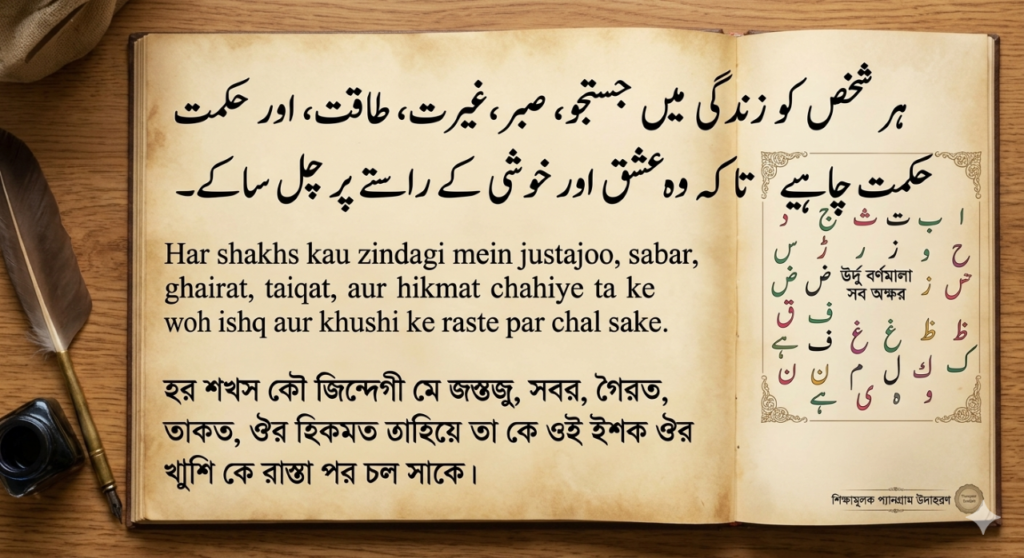 ہر شخص کو زندگی میں جستجو، صبر، غیرت، طاقت، اور حکمت
حکمت چاہیے تا کہ وہ عشق اور خوشی کے راستے پر چل ساکے۔
Har shakhs kau zindagi mein justajoo, sabar,
ghairat, taiqat, aur hikmat chahiye ta ke
woh ishq aur khushi ke raste par chal sake.
হর শখস কৌ জিন্দেগী মে জস্তজু, সবর, গৈরত,
তাকত, ঔর হিকমত তাহিয়ে তা কে ওই ইশক ঔর
খুাশি কে রাস্তা পর চল সাকে।
ا ب ت ث ج د
ح و ز ر ڑ س
ز উর্দু বর্ণমালা ض ض
সব অক্ষর
ف ق
ظ ظ غ غ ف ہے
ک ك ل م ن ن
و ه ی ہے
শিক্ষামূলক প্যানগ্রাম উদাহরণ